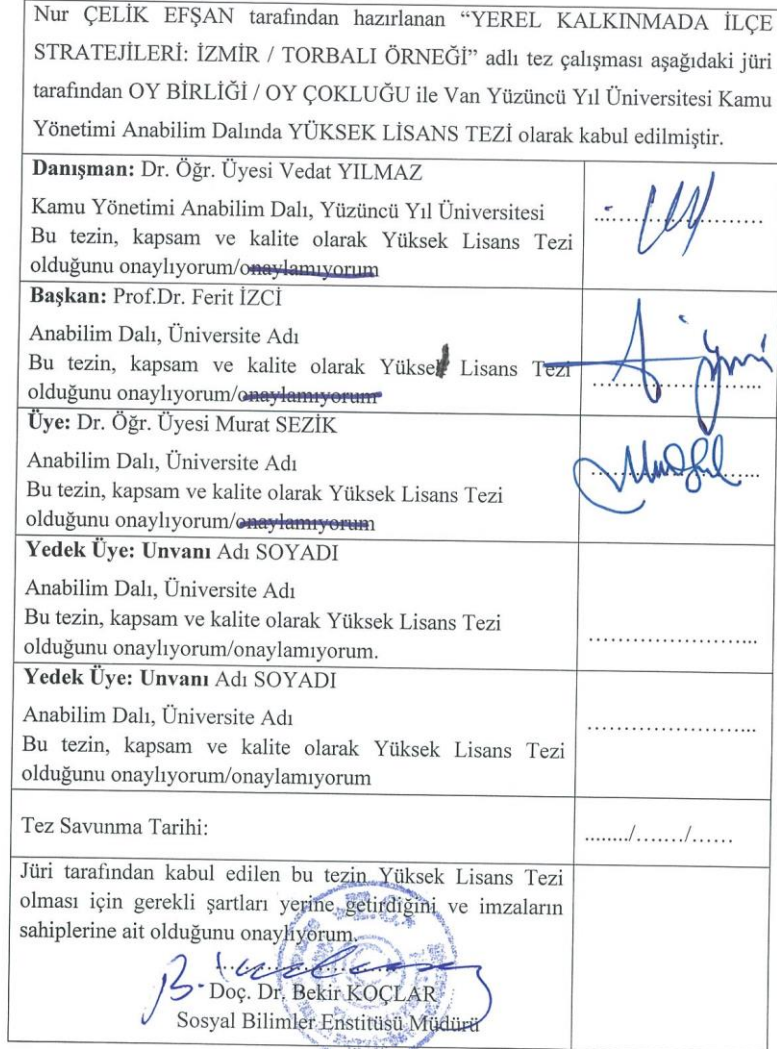 Nur ÇELİK EFŞAN tarafından hazırlanan “YEREL KALKINMADA İLÇE
STRATEJİLERİ: İZMİR / TORBALI ÖRNEĞİ” adlı tez çalışması aşağıdaki jüri
tarafından OY BİRLİĞİ / OY ÇOKLUĞU ile Van Yüzüncü Yıl Üniversitesi Kamu
Yönetimi Anabilim Dalında YÜKSEK LİSANS TEZİ olarak kabul edilmiştir.
Danışman: Dr. Öğr. Üyesi Vedat YILMAZ
Kamu Yönetimi Anabilim Dalı, Yüzüncü Yıl Üniversitesi
Bu tezin, kapsam ve kalite olarak Yüksek Lisans Tezi
olduğunu onaylıyorum/onaylamıyorum
Başkan: Prof.Dr. Ferit İZCİ
Anabilim Dalı, Üniversite Adı
Bu tezin, kapsam ve kalite olarak Yüksek Lisans Tezi
olduğunu onaylıyorum/onaylamıyorum
Üye: Dr. Öğr. Üyesi Murat SEZİK
Anabilim Dalı, Üniversite Adı
Bu tezin, kapsam ve kalite olarak Yüksek Lisans Tezi
olduğunu onaylıyorum/onaylamıyorum
Yedek Üye: Unvanı Adı SOYADI
Anabilim Dalı, Üniversite Adı
Bu tezin, kapsam ve kalite olarak Yüksek Lisans Tezi
olduğunu onaylıyorum/onaylamıyorum.
Yedek Üye: Unvanı Adı SOYADI
Anabilim Dalı, Üniversite Adı
Bu tezin, kapsam ve kalite olarak Yüksek Lisans Tezi
olduğunu onaylıyorum/onaylamıyorum
Tez Savunma Tarihi: ......../......./......
Jüri tarafından kabul edilen bu tezin Yüksek Lisans Tezi
olması için gerekli şartları yerine getirdiğini ve imzaların
sahiplerine ait olduğunu onaylıyorum.
Doç. Dr. Bekir KOÇLAR
Sosyal Bilimler Enstitüsü Müdürü